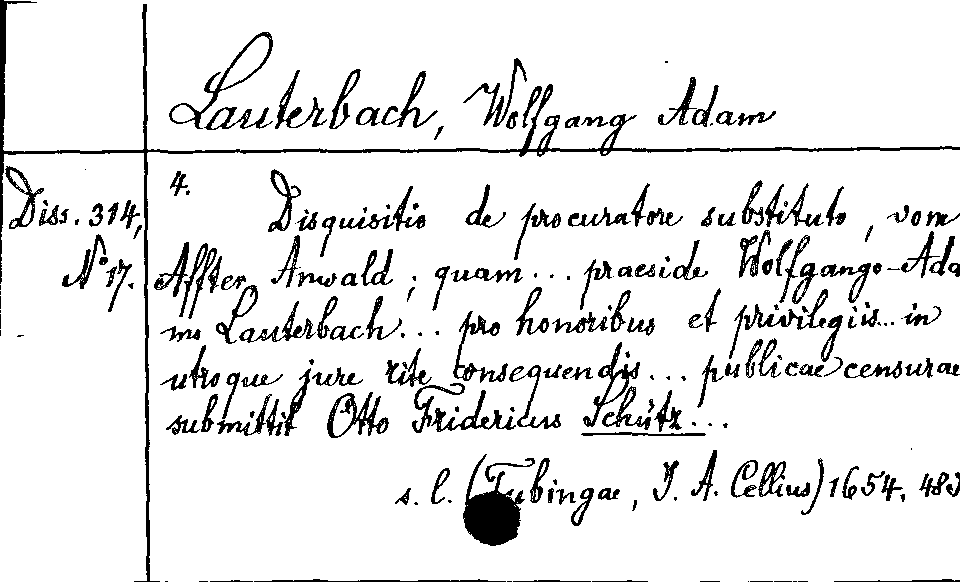 Lauterbach, Wolfgang Adam
4. Disquisitio de procuratore substituto, vom
Diss. 314,
No 17.
Affter Anwald; quam... praeside Wolfgango-Ada
mo Lauterbach... pro honoribus et privilegiis... in
utroque jure rite consequendis... publicae censurae
submittit Otto Fridericus Schütz...
s. l. (Tubingae, J. A. Cellius) 1654. 48